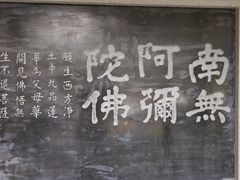 南無
阿彌
陀佛
願生西方淨
土中九品蓮
華為父母華
開見佛悟無
生不退菩薩